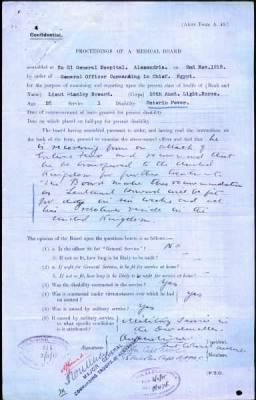 (Army Form A. 45.)
Confidential.
PROCEEDINGS OF A MEDICAL BOARD
assembled at No 21 General Hospital, Alexandria. on 2nd Mar. 1916.
by order of General Officer Commanding in Chief, Egypt.
for the purpose of examining and reporting upon the present state of health of (Rank and
Name) Lieut Stanley Howard. (Corps) 10th Aust. Light.Horse.
Age Service 1 Disability Enteric Fever.
Date of commencement of leave granted for present disability
Date on which placed on half-pay for present disability
The board having assembled pursuant to order, and having read the instructions on
the back of the form, proceed to examine the above-named officer and find that he
is recovering from an attack of
Enteric Fever and recommend that
he be transferred to the United
Kingdom for further treatment
The Board make this recommendation
as Lieutenant Howard will be fit
for duty in six weeks and all
his relatives reside in the
United Kingdom
The opinion of the Board upon the questions herein is as follows:—
(1) a. Is the officer fit for "General Service"? No
b. If not so fit, how long is he likely to be unfit?
(2) a. If unfit for General Service, is he fit for service at home?
b. If not so fit, how long is he likely to be unfit?
(3) Was the disability contracted in the service? Yes
(4) Was it contracted under circumstances over which he had
no control? Yes
(5) Was it caused by military service? Yes
(6) If caused by military service, to what specific conditions
is it attributed? Military Service in
the Dardanelles
Signatures:—
President.
Members.
(P.T.O.